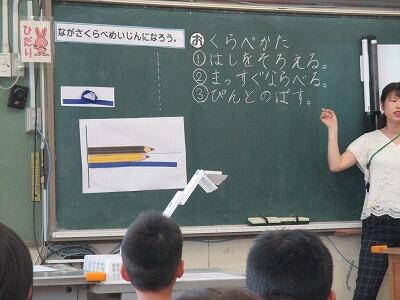 ひだり
ながさくらべめいじんになろう。
お くらべかた
①はしをそろえる。
②まっすぐならべる。
③ぴんとのばす。